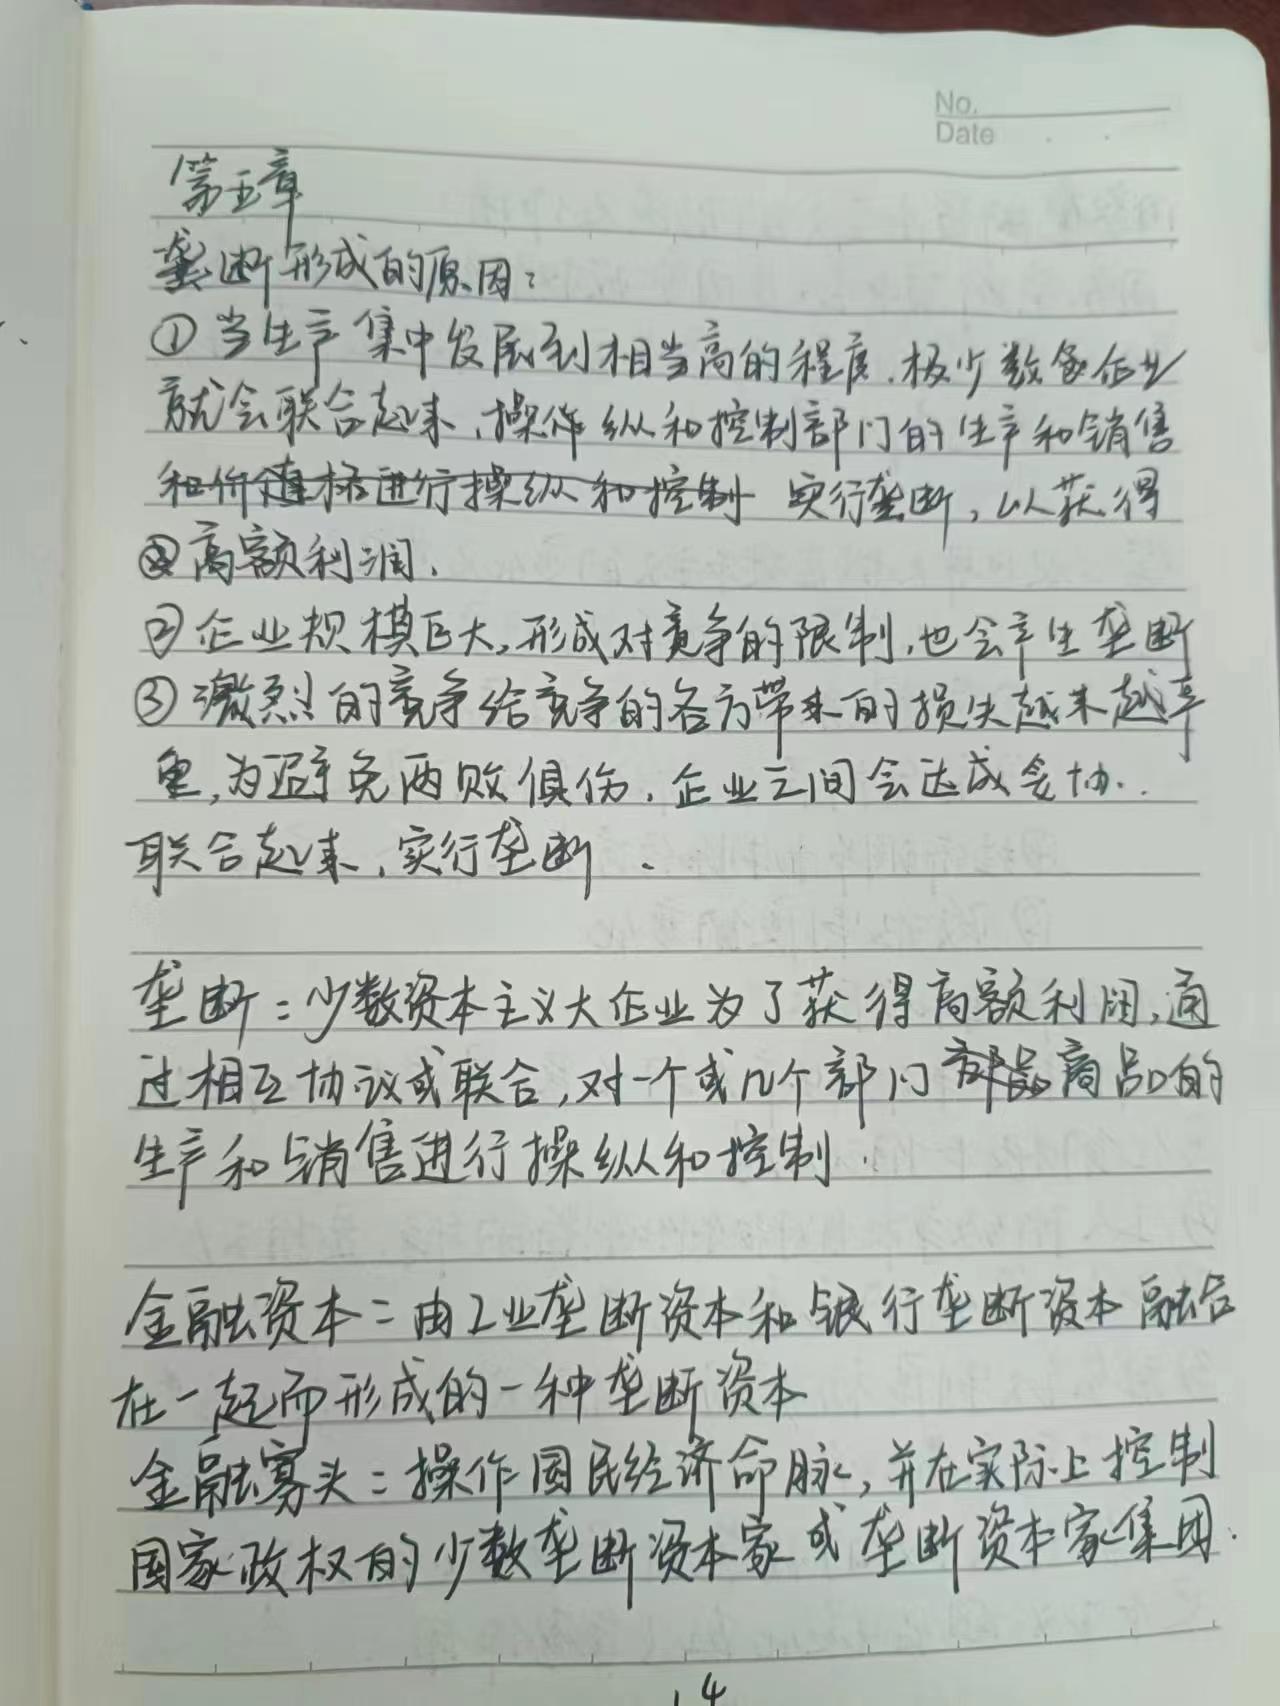 No.
Date
第五章
垄断形成的原因:
①当生产集中发展到相当高的程度,极少数企业
就会联合起来,操作纵和控制部门的生产和销售
和价值格进行操纵和控制 实行垄断,以获得
高额利润.
②企业规模巨大,形成对竞争的限制,也会产生垄断
③激烈的竞争给竞争的各方带来的损失越来越严
重,为避免两败俱伤,企业之间会达成妥协.
联合起来,实行垄断.
垄断:少数资本主义大企业为了获得高额利润,通
过相互协议或联合,对一个或几个部门商品的
生产和销售进行操纵和控制.
金融资本:由工业垄断资本和银行垄断资本融合
在一起而形成的一种垄断资本
金融寡头:操作国民经济命脉,并在实际上控制
国家政权的少数垄断资本家或垄断资本家集团.
14